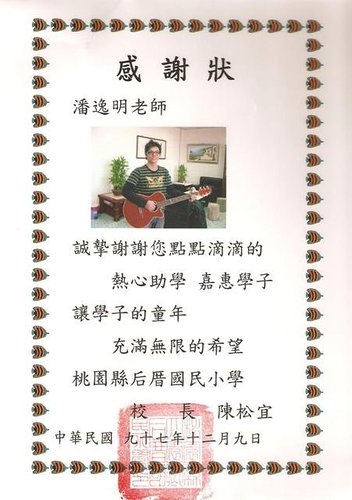 感謝狀
潘逸明老師
誠摯謝謝您點點滴滴的
熱心助學 嘉惠學子
讓學子的童年
充滿無限的希望
桃園縣后厝國民小學
校 長 陳松宜
中華民國 九十七年十二月九日